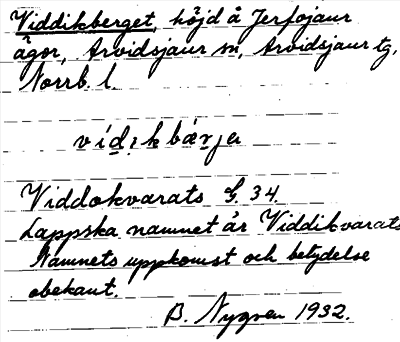 Viddikberget, höjd å Jerfojaur
ägor, Arvidsjaur sn, Arvidsjaur tg,
Norrb. l.
vídikbærjer
Viddokvarats G. 34.
Lappska namnet är Viddikvarats
Namnets uppkomst och betydelse
obekant.
B. Nygren 1932.